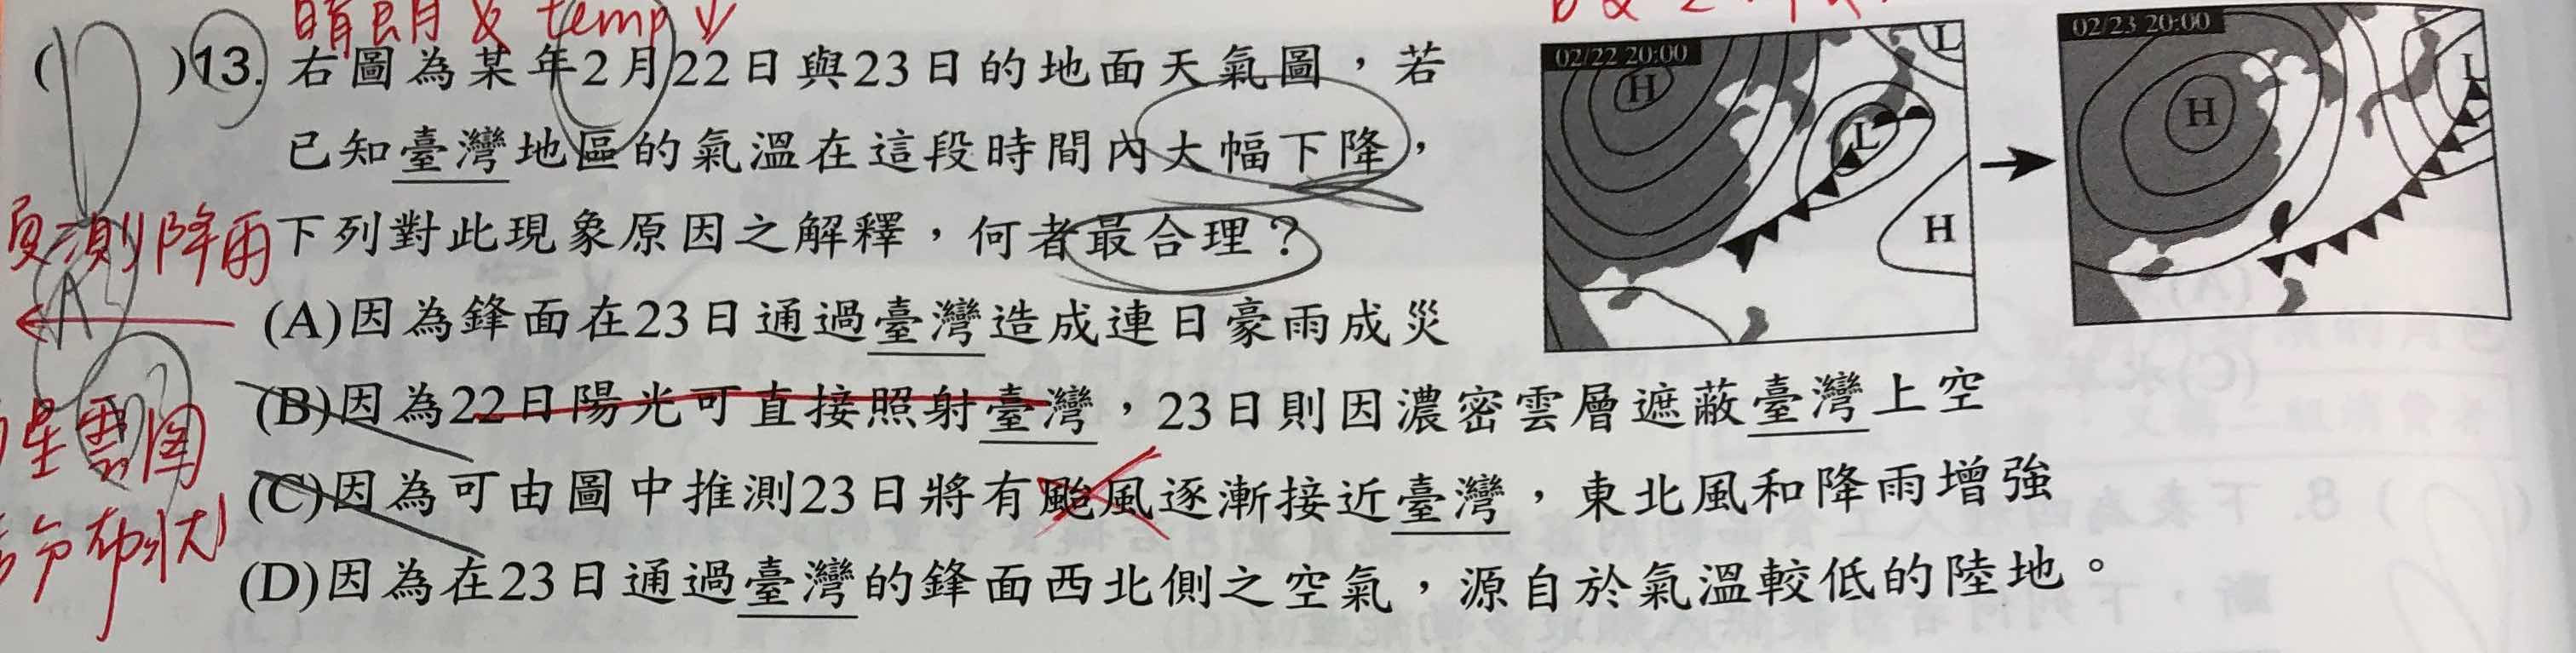 晴朗 & temp↓
( )13. 右圖為某年2月22日與23日的地面天氣圖，若
已知臺灣地區的氣溫在這段時間內大幅下降，
下列對此現象原因之解釋，何者最合理？
(A)因為鋒面在23日通過臺灣造成連日豪雨成災
(B)因為22日陽光可直接照射臺灣，23日則因濃密雲層遮蔽臺灣上空
(C)因為可由圖中推測23日將有颱風逐漸接近臺灣，東北風和降雨增強
(D)因為在23日通過臺灣的鋒面西北側之空氣，源自於氣溫較低的陸地。
02/22 20:00
H
L
L
H
02/23 20:00
H
L
測降雨
A
星雲圖
分布狀